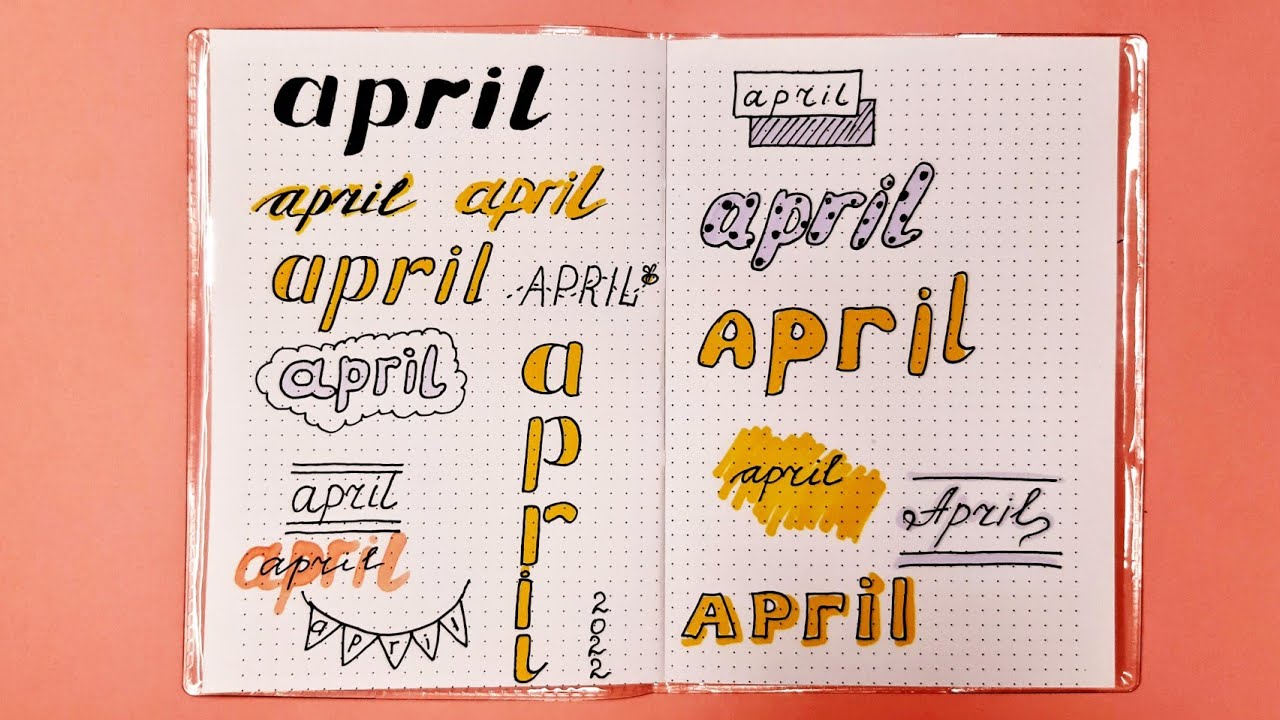 april
april april
april
APRIL
april
april
april
april
april
2022
april
april
April
april
April
April